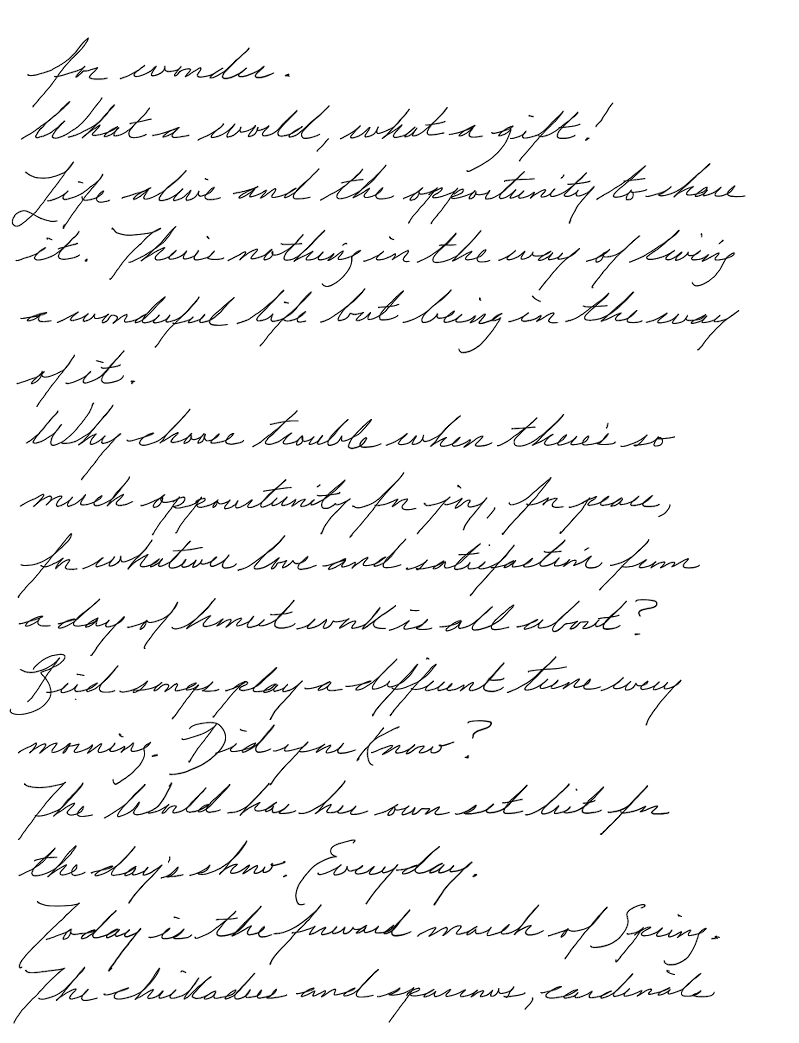 for wonder.
What a world, what a gift!
Life alive and the opportunity to share
it. There's nothing in the way of living
a wonderful life but being in the way
of it.
Why choose trouble when there's so
much opportunity for joy, for peace,
for whatever love and satisfaction from
a day of honest work is all about?
Bird songs play a different tune every
morning. Did you Know?
The World has her own set list for
the day's show. Everyday.
Today is the forward march of Spring.
The chickadees and sparrows, cardinals